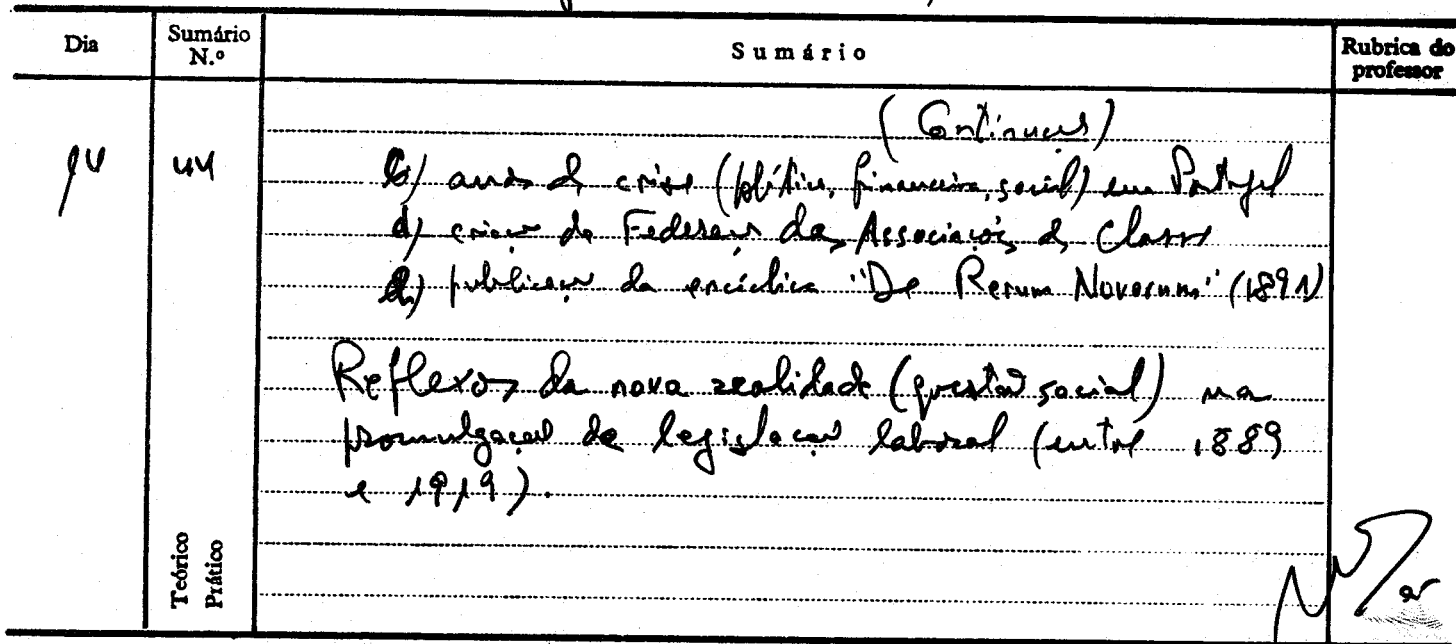 Dia
Sumário N.º
Sumário
Rubrica do professor
(Continuação)
anos de crise (política, financeira, social) em Portugal
d) criação da Federação das Associações de Classe
publicação da encíclica "De Rerum Novarum" (1891)
Reflexos da nova realidade (questão social) na
promulgação de legislação laboral (entre 1889
e 1919).
Teórico
Prático